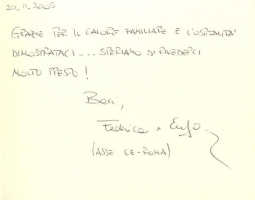 20.11.2005
GRAZIE PER IL CALORE FAMILIARE E L'OSPITALITÀ
DIMOSTRATACI... SPERIAMO DI RIVEDERCI
MOLTO PRESTO!
Baci,
Federica + Enzo
(ASSE CE-ROMA)